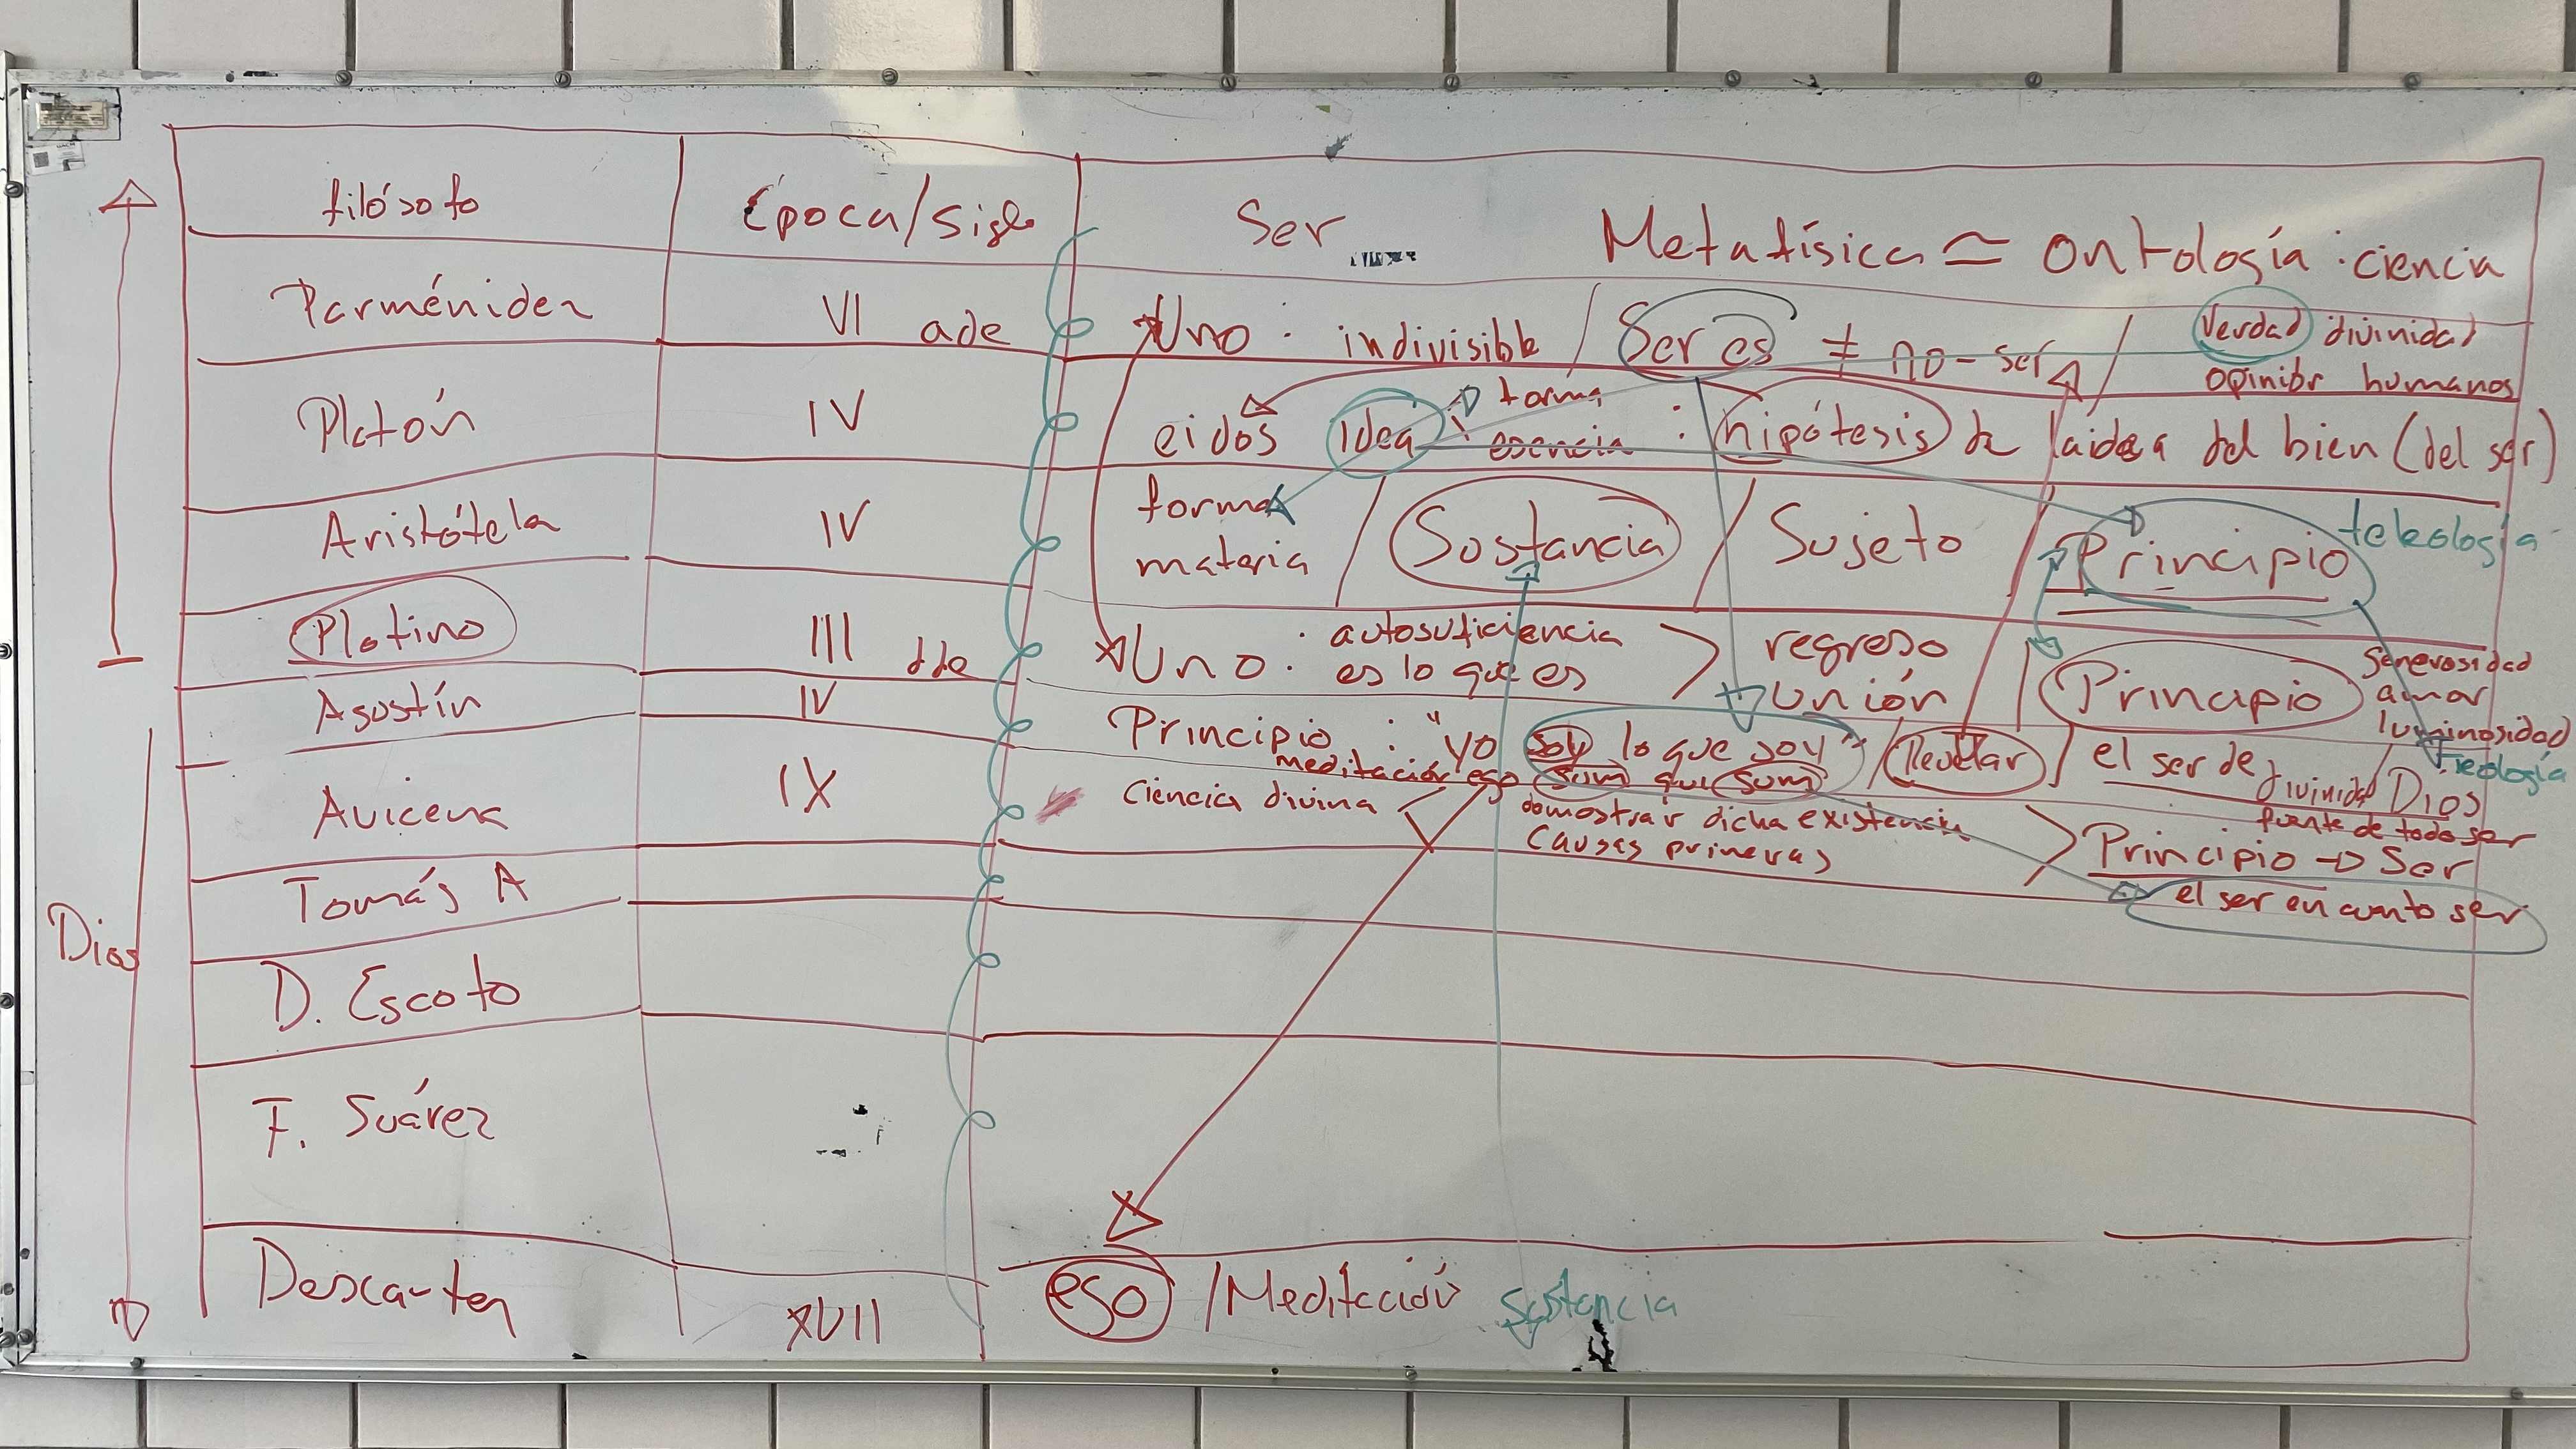 filósofo Época/siglo Ser Metafísica ≃ Ontología : ciencia
Parménides VI ade Uno : indivisible / Ser es ≠ no-ser / Verdad divinidad
opinión humanos
Platón IV eidos idea : forma
esencia : hipótesis de la idea del bien (del ser)
Aristóteles IV forma / Sustancia / Sujeto / Principio teleología
materia
Plotino III dde Uno : autosuficiencia > regreso / Principio generosidad
es lo que es unión amor
luminosidad
Agustín IV Principio : "yo soy lo que soy" / Revelar / el ser de divinidad / Dios Teología
meditación ego sum qui sum fuente de todo ser
Avicena IX ciencia divina < demostrar dicha existencia > Principio → Ser
causas primeras
el ser en cuanto ser
Tomás A
Dios
D. Escoto
F. Suárez
Descartes XVII ego / Meditación sustancia